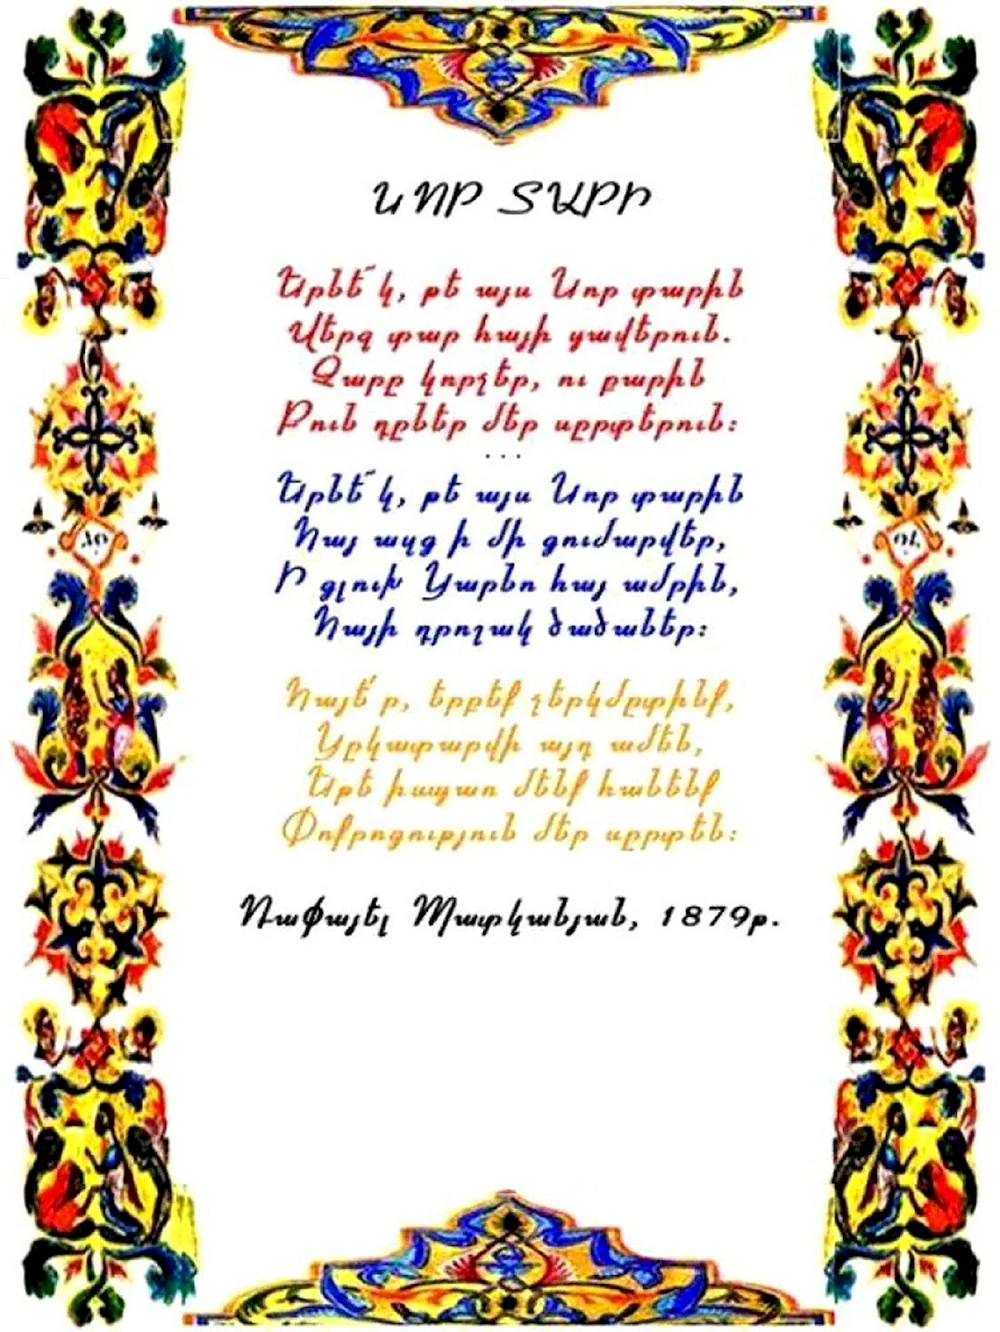 ՆՈՐ ՏԱՐԻ
Երնե՜կ, թե այս Նոր տարին
Վերջ տար հայի ցավերուն.
Չարը կորչեր, ու բարին
Բուն դըներ մեր սըրտերուն:
...
Երնե՜կ, թե այս Նոր տարին
Հայ ազգ ի մի ցումարվեր,
Ի գլուխ Հայի ամրին,
Հայի դրոշակ ծածաներ:
Հայե՛ր, երբեք չերկմըտինք,
Կըկատարվի այդ ամեն,
Եթե իսպառ մենք հանենք
Փոքրոգություն մեր սըրտեն:
Ռափայել Պատկանյան, 1879թ.